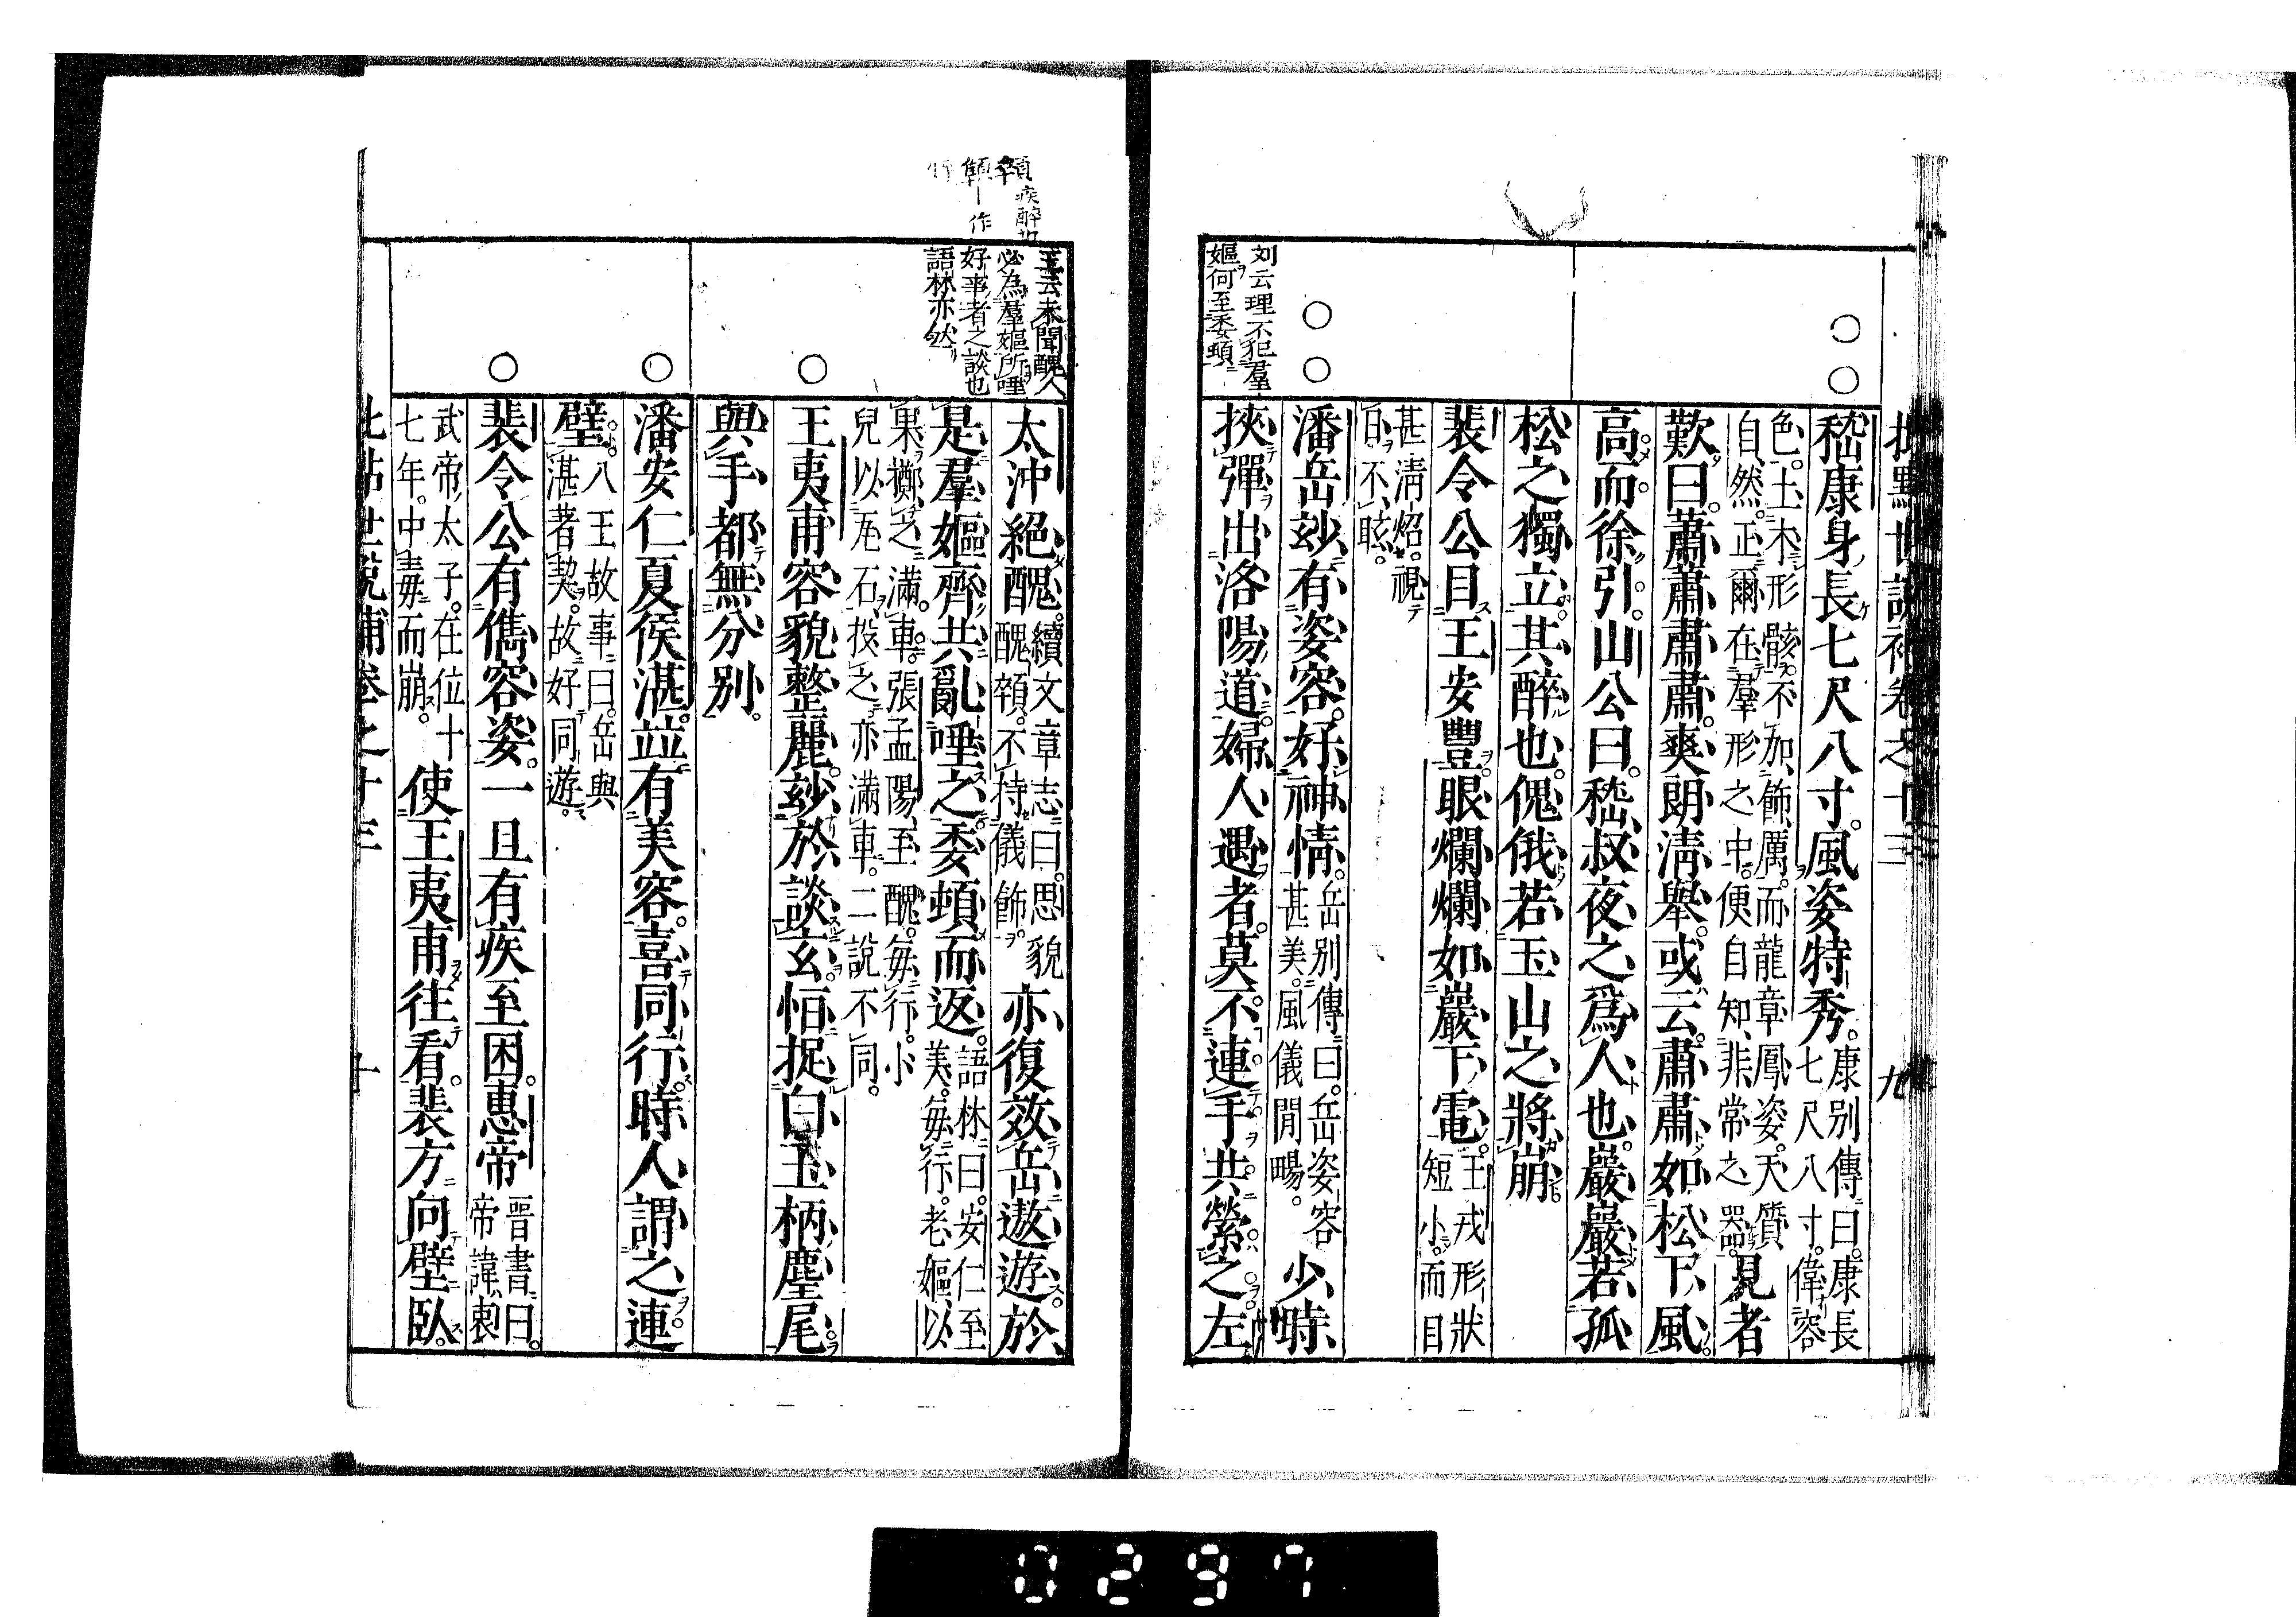 批點世說補卷之十三 九
嵇康身長七尺八寸。風姿特秀。康別傳曰。康長七尺八寸。偉容
色。土木形骸。不加飾厲。而龍章鳳姿。天質自然。正爾在羣形之中。便自知非常之器。見者
歎曰。蕭蕭肅肅。爽朗清舉。或云。肅肅如松下風。
高而徐引。山公曰。嵇叔夜之爲人也。巖巖若孤
松之獨立。其醉也。傀俄若玉山之將崩。
裴令公目王安豐。眼爛爛如巖下電。王戎形狀短小。而目
甚清炤。視日不眩。
潘岳玅有姿容。好神情。岳別傳曰。岳姿容甚美。風儀閒暢。少時
挾彈出洛陽道。婦人遇者。莫不連手共縈之。左
刘云理不犯羣
嫗何至委頓
太沖絕醜。續文章志曰。思貌醜顇。不持儀飾。亦復效岳遨遊。於
是羣嫗齊共亂唾之。委頓而返。語林曰。安仁至美。每行。老嫗以
果擲之。滿車。張孟陽至醜。每行。小兒以瓦石投之。亦滿車。二說不同。
王夷甫容貌整麗。玅於談玄。恒捉白玉柄麈尾。
與手都無分別。
潘安仁夏侯湛。竝有美容。喜同行。時人謂之連
璧。八王故事曰。岳與湛著契。故好同遊。
裴令公有儁容姿。一旦有疾至困。惠帝晉書曰。帝諱衷
武帝太子。在位十七年。中毒而崩。使王夷甫往看。裴方向壁臥。
批點世說補卷之十三 十
王云未聞醜人
必為羣嫗所唾
好事者之談也
語林亦然
顇疾醉切
顇一作